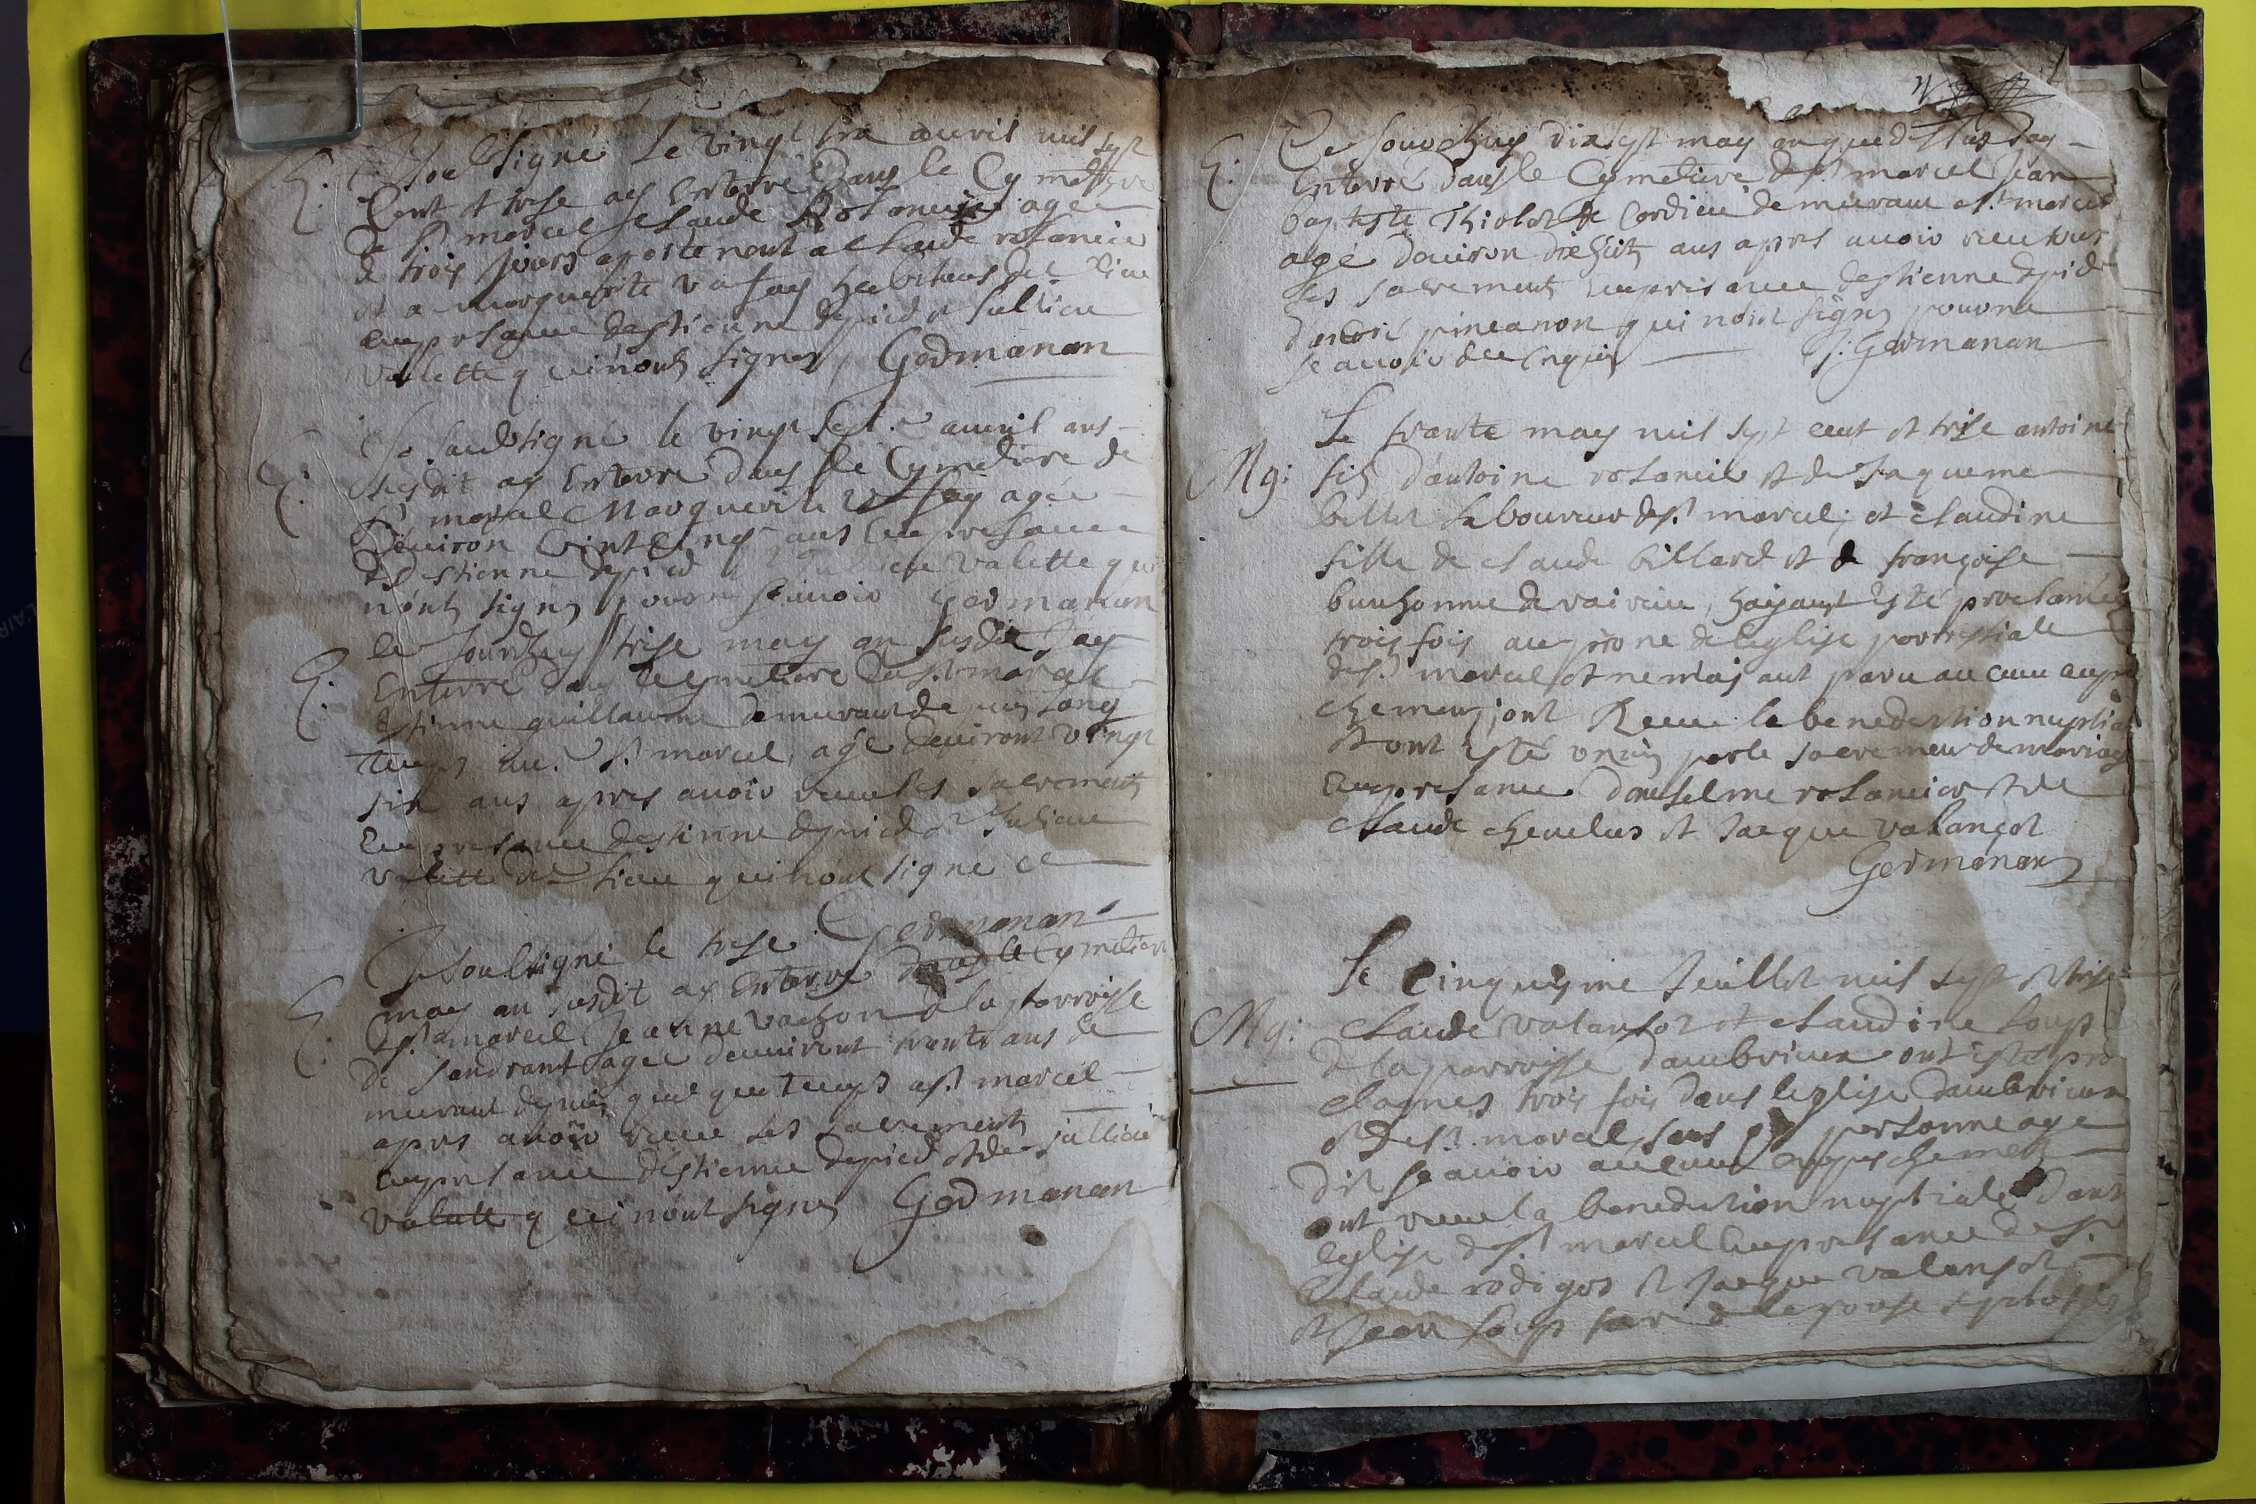 E. Je soubsigné le vingt six auvril mil sept
Cent et trise ay Enterré dans le Cymetiere
de st marcel Claude Rolancier agée
de trois jours apartenent a Claude rolancier
et a marguerite vafay habitans du lieu
en presance destienne depied et Jullien
valette qui nont signes Godmanan
E. Je soubsigné le vingt sept auvril ans
susdit ay Enterré dans le Cymetiere de
st marcel Marguerite vafay agée
deuiron vint cinq ans en presance
destienne depied Jullien valette qui
nont signes pouvoir scauoir Godmanan
E. ce Jourdhuy trise may an susdit Jay
Enterré dans le Cymetiere de st marcel
Estienne guillaume demeurant depuis long
temps au st marcel, age deuiront vingt
six ans apres auoir receu les sacrements
En presance destienne depied et Jullien
valette dud lieu qui nont signé ce
Godmanan
E. Je soubsigné le trise
may an susdit ay Enterré dans le Cymetiere
de st marcel Jeanne vachon de la parroisse
de sandrant agée deuiront trante ans de
meurant depuis quelque temps a st marcel
apres auoir receu les sacrements
en presance destienne depied et de Jullien
valette qui nont signes Godmanan
E. Ce Jourdhuy dix sept may an que dessus Jay
Enterré dans le Cymetiere de st marcel Jean
baptiste Thiolot de Cordieu demeurant a st marcel
agé deuiron dixhuit ans apres auoir receu tous
les sacrement en presance destienne depied
qui nont signes pouvoir
scauoir de ce enquis J. Godmanan
Mg: Le trante may mil sept cent et trise antoine
fils dantoine rolancier et de Jaqueme
billet laboureur de st marcel; et Claudine
fille de Claude billard et de françoise
bonhomme de vairieu, hayant esté proclamés
trois fois au prone de leglise parroissiale
de st marcel et ne mayant paru aucun enpe
chement, ont Receu la benediction nuptiale
et ont esté vnis par le sacrement de mariage
En presance danselme rolancier et de
Claude cheuelus et Jacque valançot
Godmanan
Mg: Le Cinquiesme Juillet mil sept et trise
Claude valansot et Claudine loup
de la parroisse dambrieux ont esté pro
clames trois fois dans leglise dambrieux
et de st marcel sans que personne aye
dit scauoir aucun enpeschement
ont receu la benediction nuptiale dans
leglise de st marcel en presance de sr
Claude rodigos et Jacque valansot
et Jean loup de lespouse